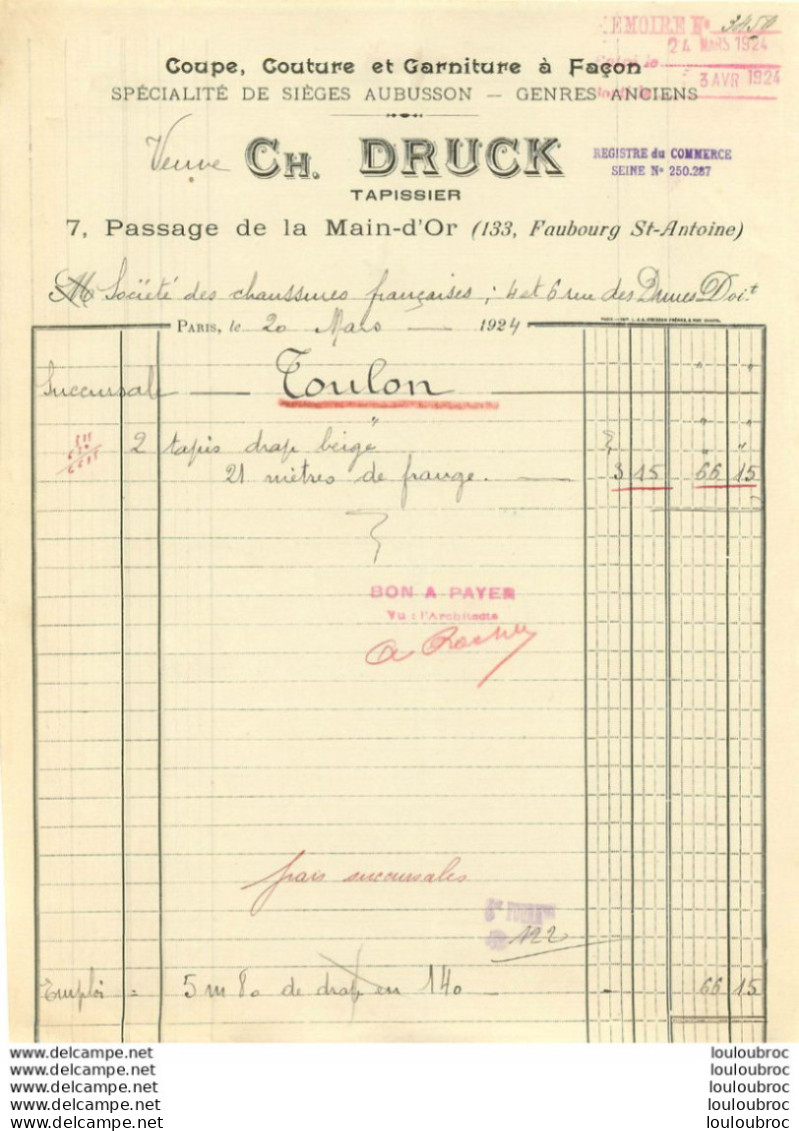 MÉMOIRE No 3450
24 MARS 1924
3 AVR 1924
Coupe, Couture et Garniture à Façon
SPÉCIALITÉ DE SIÈGES AUBUSSON — GENRES ANCIENS
Veuve CH. DRUCK
REGISTRE du COMMERCE
SEINE No 250.287
TAPISSIER
7, Passage de la Main-d'Or (133, Faubourg St-Antoine)
M Société des chaussures françaises ; 4 et 6 rue des Dunes Doit
PARIS, le 20 Mars 1924
Succursale — Toulon
2 tapis drap beige
21 mètres de frange. — 3 15 66 15
BON A PAYER
Vu : l'Architecte
frais succursales
122
Emploi = 5 m 80 de drap en 140 — - 66 15
www.delcampe.net louloubroc
www.delcampe.net louloubroc
www.delcampe.net louloubroc
www.delcampe.net louloubroc
www.delcampe.net louloubroc